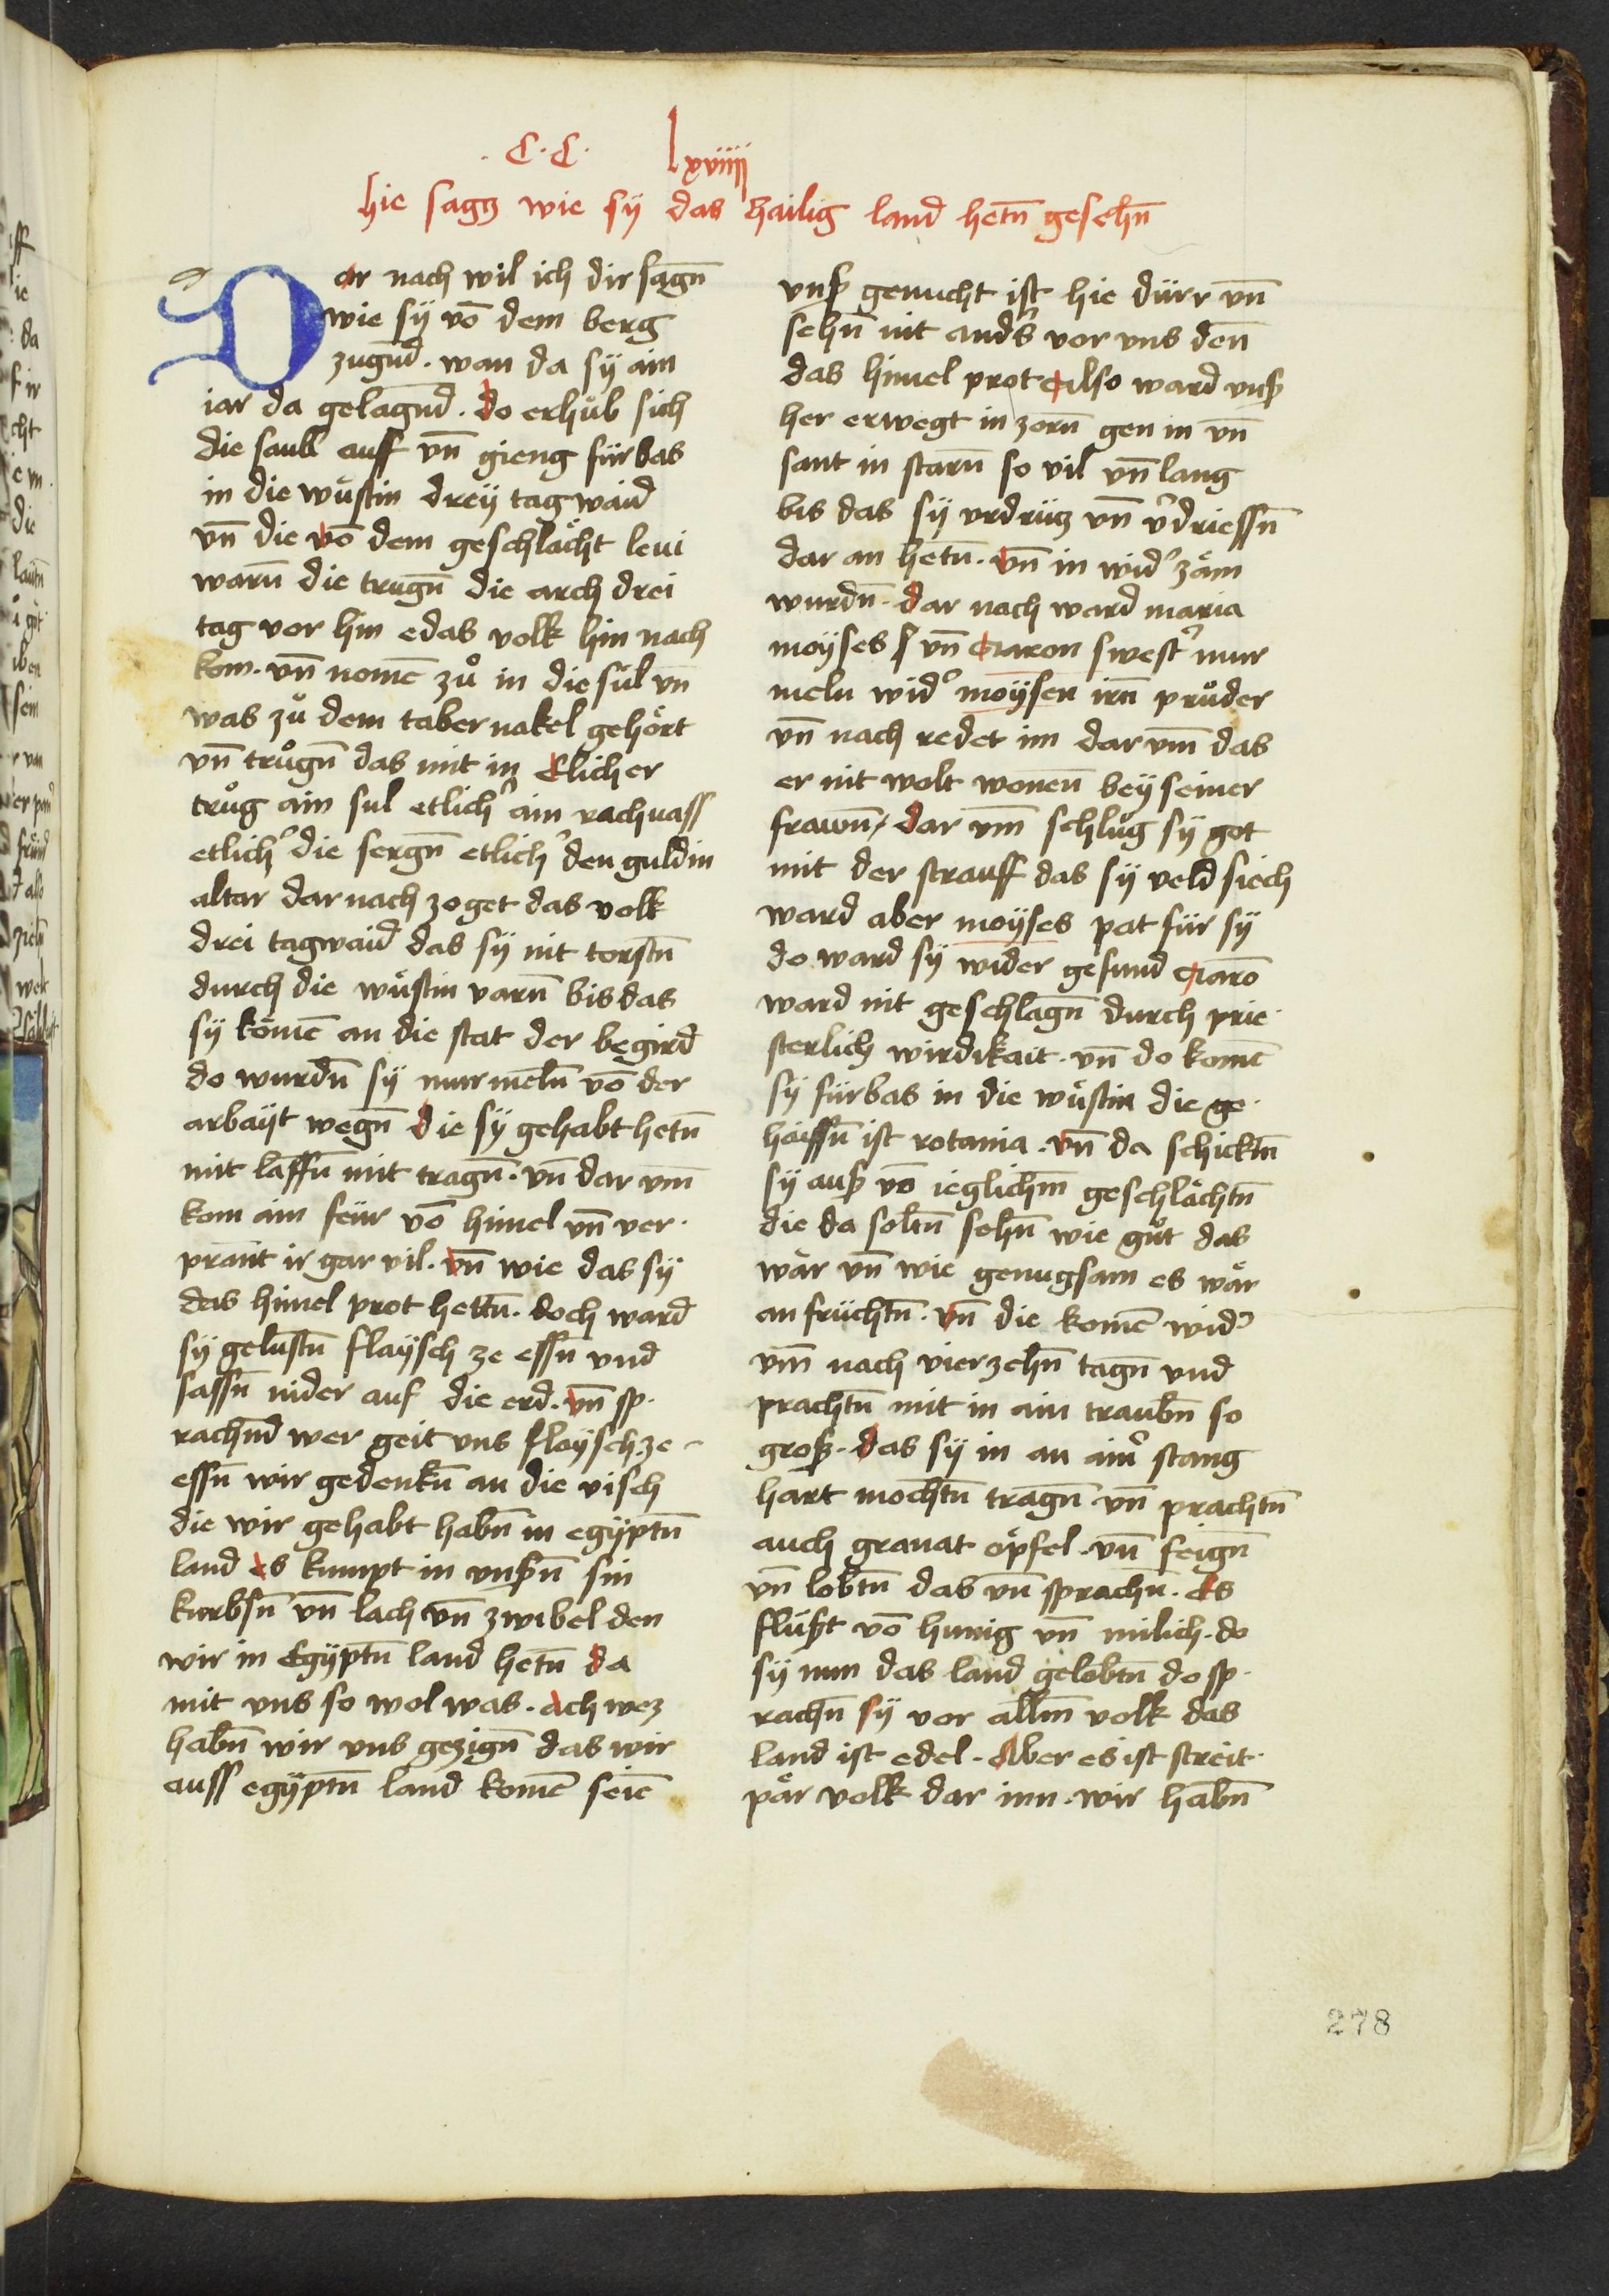 .C.C. lxviiij
hie sagt wie sy das hailig land hetn̄ gesehn̄
Dar nach wil ich dir sagn̄
wie sy vō dem berg
zugnd. wan da sy ain
iar da gelagnd. do erhůb sich
die saubl auff vn̄ gieng für bas
in die wüstin dreÿ tag waid
vn̄ die vō dem geschlächt leui
warn̄ die trugn̄ die arch drei
tag vor hin e das volk hin nach
kom. vn̄ nomē zů in die sül vn̄
was zů dem tabernakel gehört
vn̄ trůgn̄ das mit in Etlicher
trůg ain sul etlichʾ ain rachuass
etlichʾ die sergn̄ etlichʾ den guldin
altar dar nach zoget das volk
drei tagwaid das sÿ nit torstn̄
durch die wüstin varn̄ bis das
sÿ kömē an die stat der begird
do wurdn̄ sÿ murmeln̄ vō der
arbaÿt wegn̄ die sÿ gehabt hetn̄
mit laffn̄ mit tragn̄. vn̄ dar vm̄
kom ain feür vō himel vn̄ ver.
prant ir gar vil. vn̄ wie das sÿ
das himel prot hettn̄. doch ward
sÿ gelustn̄ flaÿsch ze essn̄ vnd
sassn̄ nider auf die erd. vn̄ sp.
rachnd wer geit vns flaÿsch ze
essn̄ wir gedenkn̄ an die visch
die wir gehabt habn̄ in egÿptn̄
land es kumpt in vnsßn̄ sin
kurbsn̄ vn̄ lach vn̄ zwibel den
wir in Egÿptn̄ land hetn̄ da
mit vns so wol was. ach wez
habn̄ wir vns gezign̄ das wir
auss egÿptn̄ land komē seiē
vnß genucht ist hie dürr vn̄
sehn̄ nit andsʾ vor vns den̄
das himel prot Also ward vnß
her erwegt in zorn̄ gen in vn̄
sant in starn̄ so vil vn̄ lang
bis das sÿ vrdrütz vn̄ vʾdriessn̄
dar an hetn̄. vn̄ in widʾ zäm
wurdn̄. dar nach ward maria
moÿses vn̄ Aaron swestʾ mur
meln widʾ moÿsen irn̄ průder
vn̄ nach redet im dar vm̄ das
er nit wolt wonen̄ beÿ seiner
frawn̄ / dar vm̄ schlůg sÿ got
mit der strauff das sÿ veld siech
ward aber moÿses pat für sÿ
do ward sÿ wider gesund Aarō
ward nit geschlagn̄ durch prie.
sterlich wirdikait. vn̄ do komē
sÿ fürbas in die wüstin die ge.
haissn̄ ist rotania. vn̄ da schicktn̄
sÿ auß vō ieglichm̄ geschlächtn̄
die da soltn̄ sehn̄ wie gůt das
wär vn̄ wie genugsam es wär
an früchtn̄. vn̄ die komē widʾ
vm̄ nach vierzehn̄ tagn̄ vnd
prachtn̄ mit in ain traubn̄ so
groß. das sÿ in an aimʾ stang
hart mochtn̄ tragn̄ vn̄ prachtn̄
auch granat öpfel. vn̄ feign̄
vn̄ lobtn̄ das vn̄ sprachn̄. Es
flüßt vō hunig vn̄ milich. do
sÿ nun das land gelobtn̄ do sp.
rachn̄ sÿ vor allm̄ volk das
land ist edel. Aber es ist streit.
pär volk dar inn. wir habn̄
278